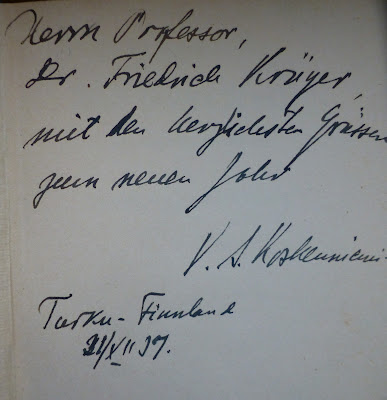 Herrn Professor,
Dr. Friedrich Krüger,
mit den herzlichsten Grüssen
zum neuen Jahr
V. A. Koskenniemi
Turku - Finnland
21/XII 37.